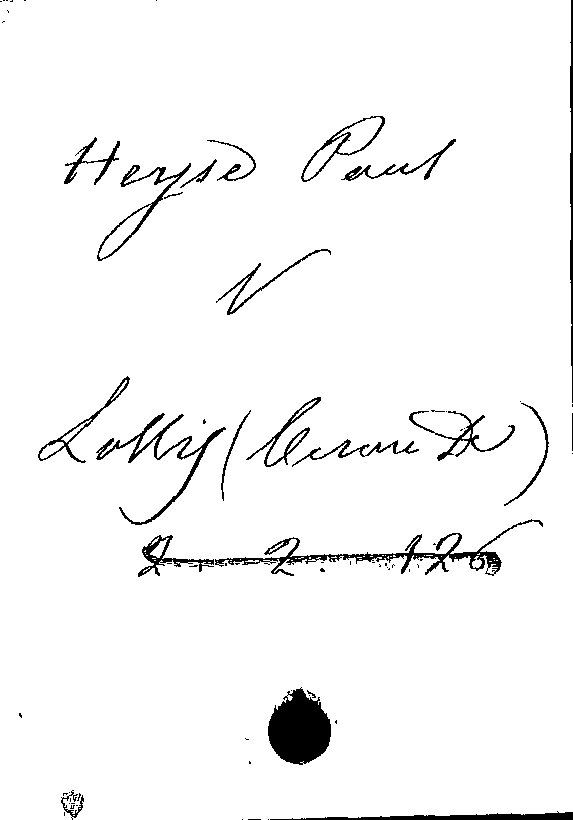 Heyse Paul
V
Lollis (Cesare De)
2. 2. 126